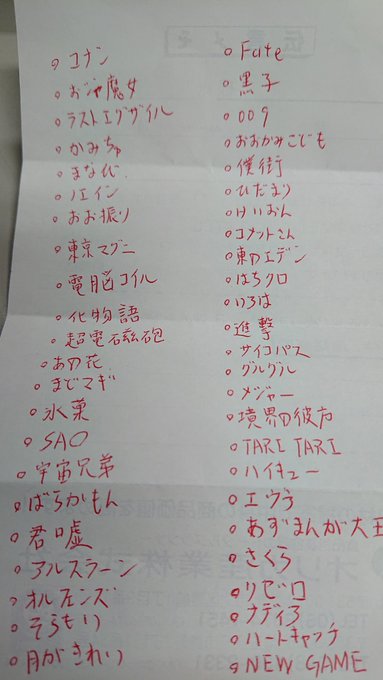 伝言メモ
○ コナン
○ おジャ魔女
○ ラストエグザイル
○ かみちゅ
○ まなび
○ ノエイン
○ おお振り
○ 東京マグニ
○ 電脳コイル
○ 化物語
○ 超電石磁砲
○ あの花
○ まどマギ
○ 氷菓
○ SAO
○ 宇宙兄弟
○ ばらかもん
○ 君嘘
○ アルスラーン
○ オルフェンズ
○ そらもり
○ 月がきれい
○ Fate
○ 黒子
○ 009
○ おおかみこども
○ 僕街
○ ひだまり
○ けいおん
○ コメットさん
○ 東のエデン
○ はちクロ
○ いろは
○ 進撃
○ サイコパス
○ グルグル
○ メジャー
○ 境界の彼方
○ TARI TARI
○ ハイキュー
○ エウう
○ あずまんが大王
○ さくら
○ リゼロ
○ ナディア
○ ハートキャッチ
○ NEW GAME